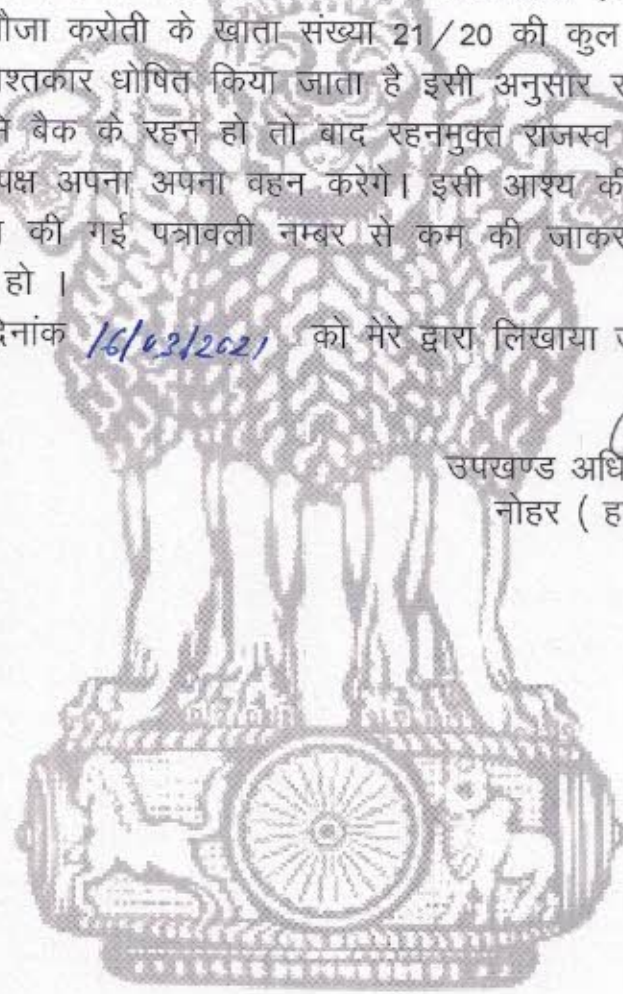 मौजा करोती के खाता संख्या 21/20 की कुल
श्तकार धोषित किया जाता है इसी अनुसार
बैक के रहन हो तो बाद रहनमुक्त राजस्व
पक्ष अपना अपना वहन करेगे। इसी आश्य की
की गई पत्रावली नम्बर से कम की जाकर
हो ।
दिनांक 16/03/2021 को मेरे द्वारा लिखाया
उपखण्ड अधि
नोहर ( ह